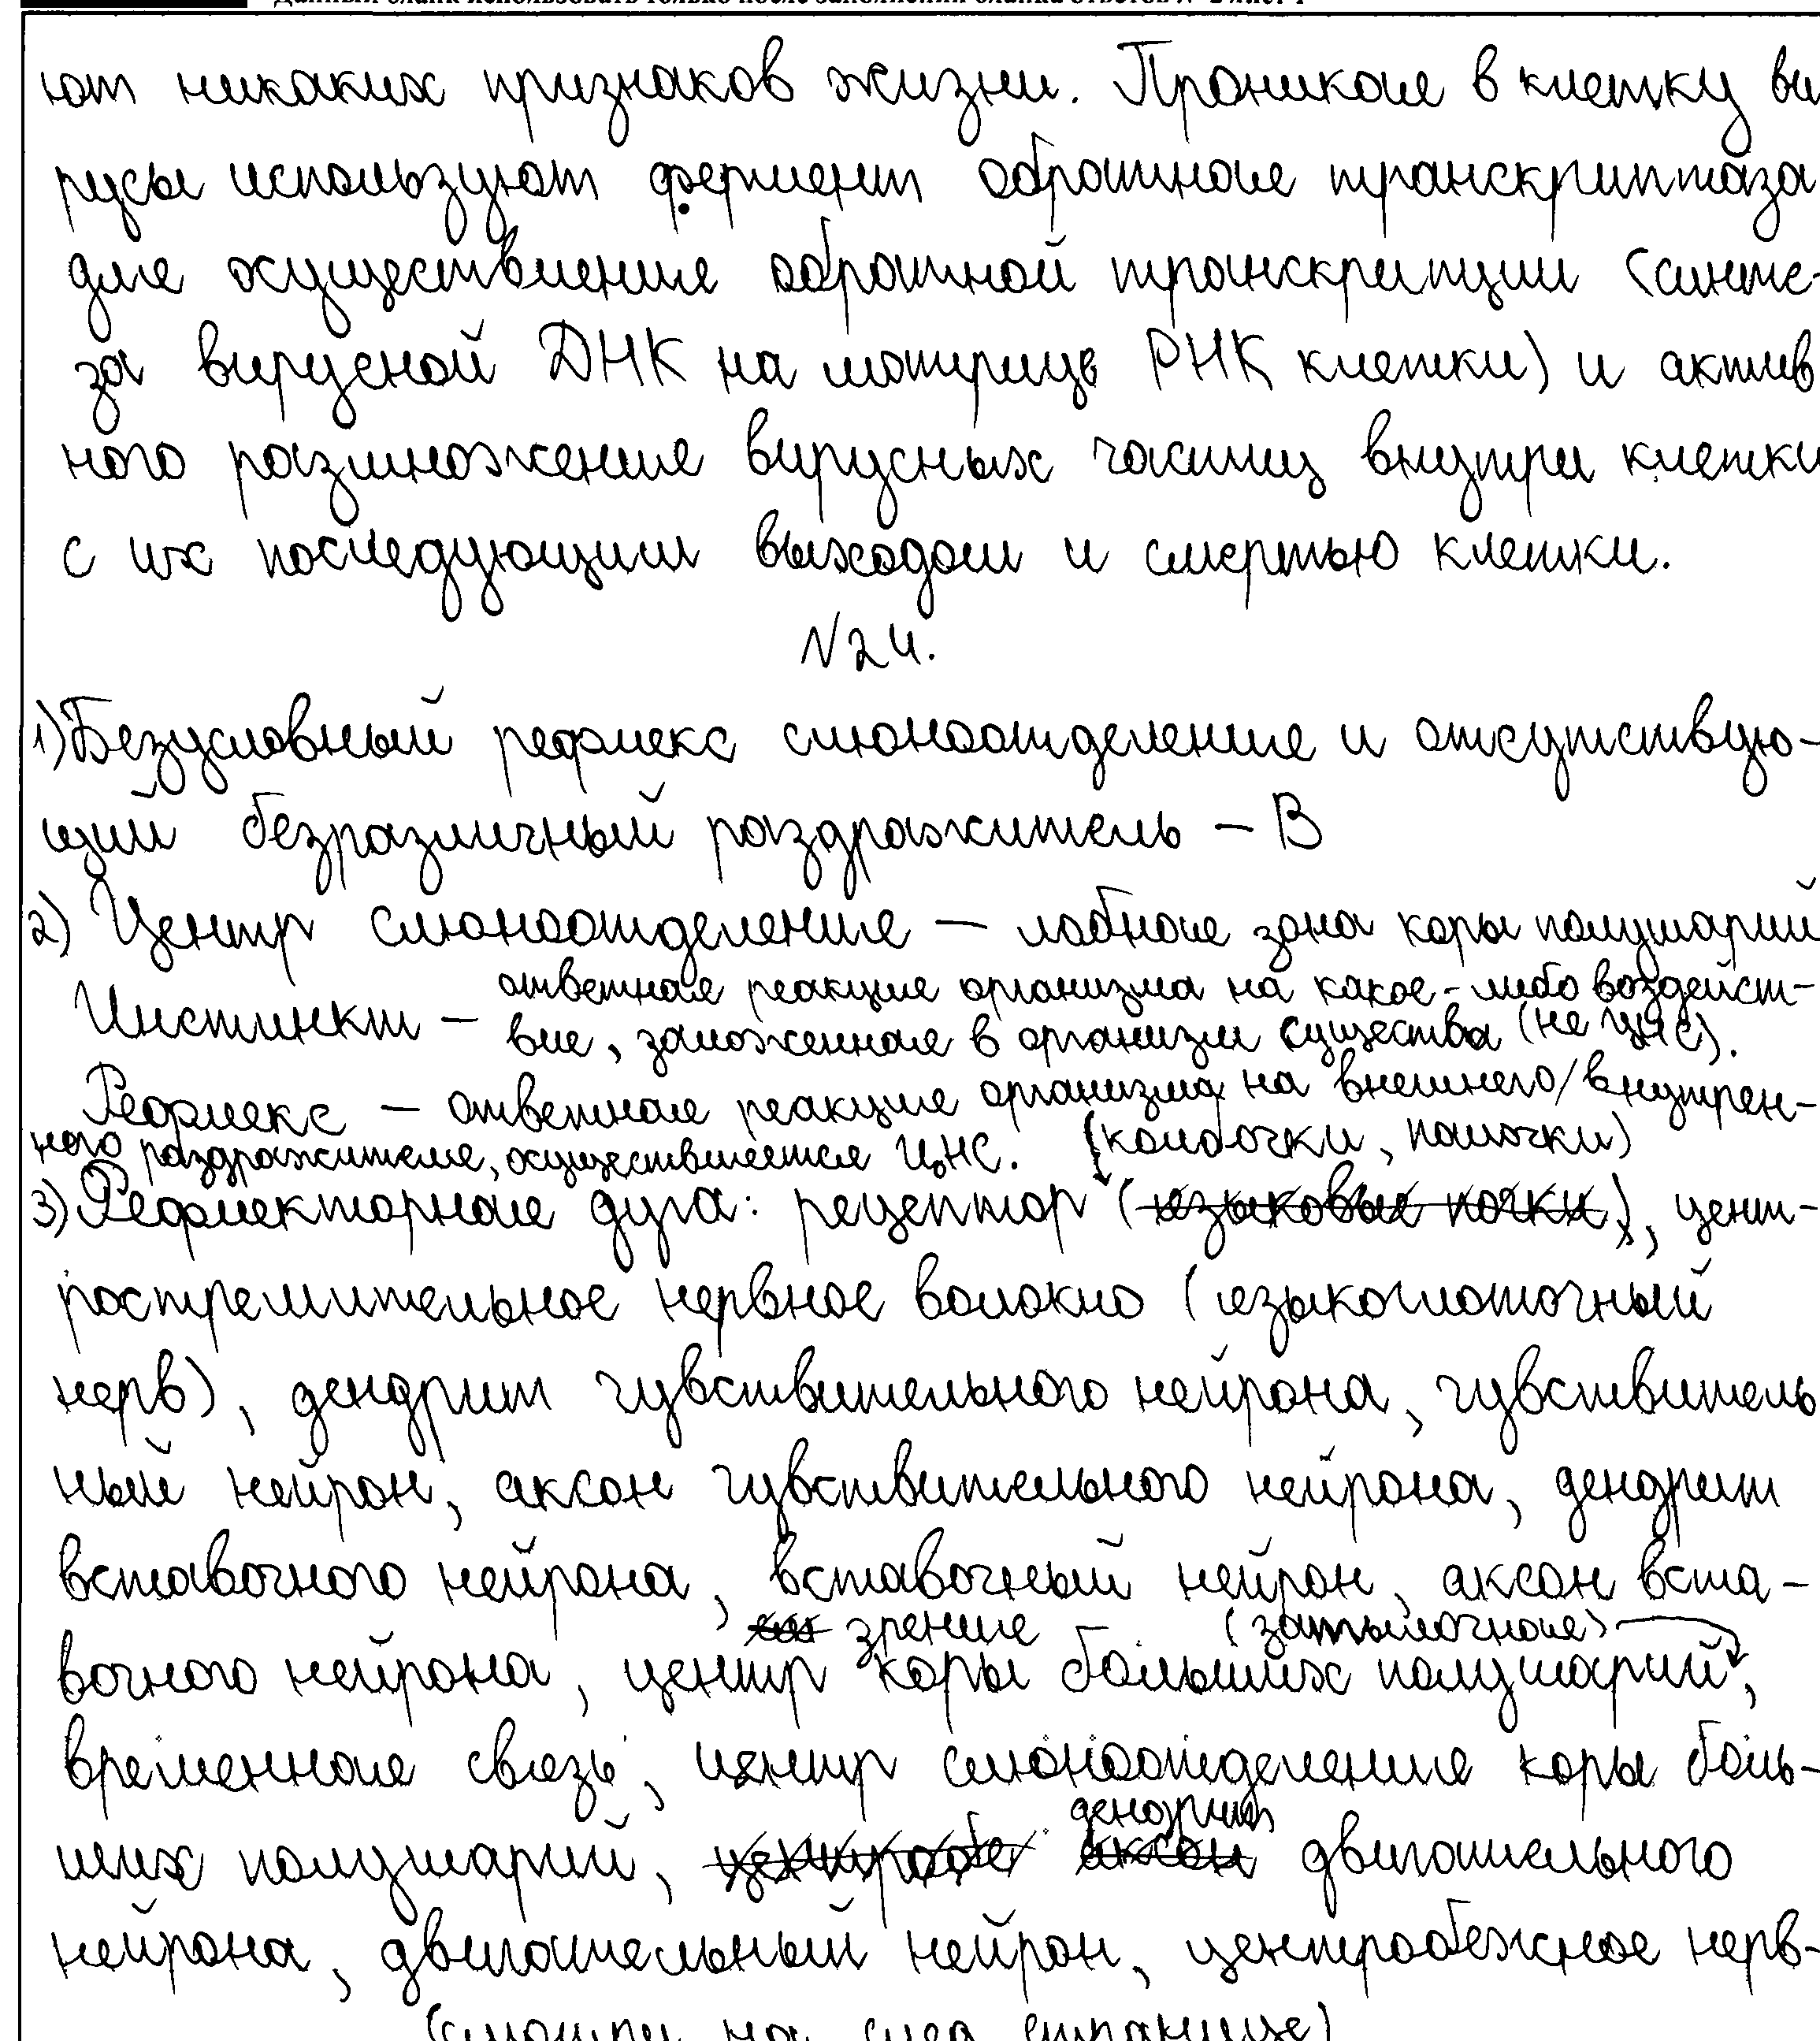 Данный бланк использовать только после заполнения бланка ответов № 2 лист 1
ют никаких признаков жизни. Проникая в клетку ви
русы используют фермент обратная транскриптаза
для осуществления обратной транскрипции (синте-
за вирусной ДНК на матрице РНК клетки) и актив
ного размножения вирусных частиц внутри клетки
с их последующим выходом и смертью клетки.
№24.
1) Безусловный рефлекс слюноотделение и отсутствую-
щий безразличный раздражитель – В
2) Центр слюноотделения – лобная зона коры полушарий
Инстинкт – ответная реакция организма на какое-либо воздейст-
вие, заложенная в организм существа (не ЦНС).
Рефлекс – ответная реакция организма на внешнего/внутрен-
него раздражителя, осуществляется ЦНС. (колбочки, палочки)
3) Рефлекторная дуга: рецептор (языковые почки), цент-
ростремительное нервное волокно (языкоглоточный
нерв), дендрит чувствительного нейрона, чувствитель
ный нейрон, аксон чувствительного нейрона, дендрит
вставочного нейрона, вставочный нейрон, аксон вста-
зрения (затылочная)
вочного нейрона, центр коры больших полушарий,
временная связь, центр слюноотделения коры боль-
дендрит
ших полушарий, аксон двигательного
нейрона, двигательный нейрон, центробежное нерв-
(смотри на след странице)